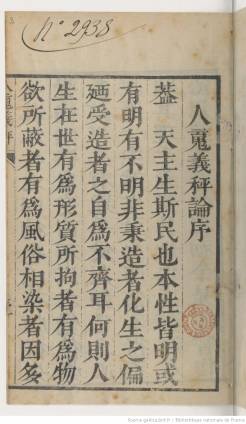 No 2938
人䰟義秤論序
葢　天主生斯民也本性皆明或
有明有不明非秉造者化生之偏
廼受造者之自為不齊耳何則人
生在世有為形質所拘者有為物
欲所蔽者有為風俗相染者因多
Source gallica.bnf.fr / Bibliothèque nationale de France